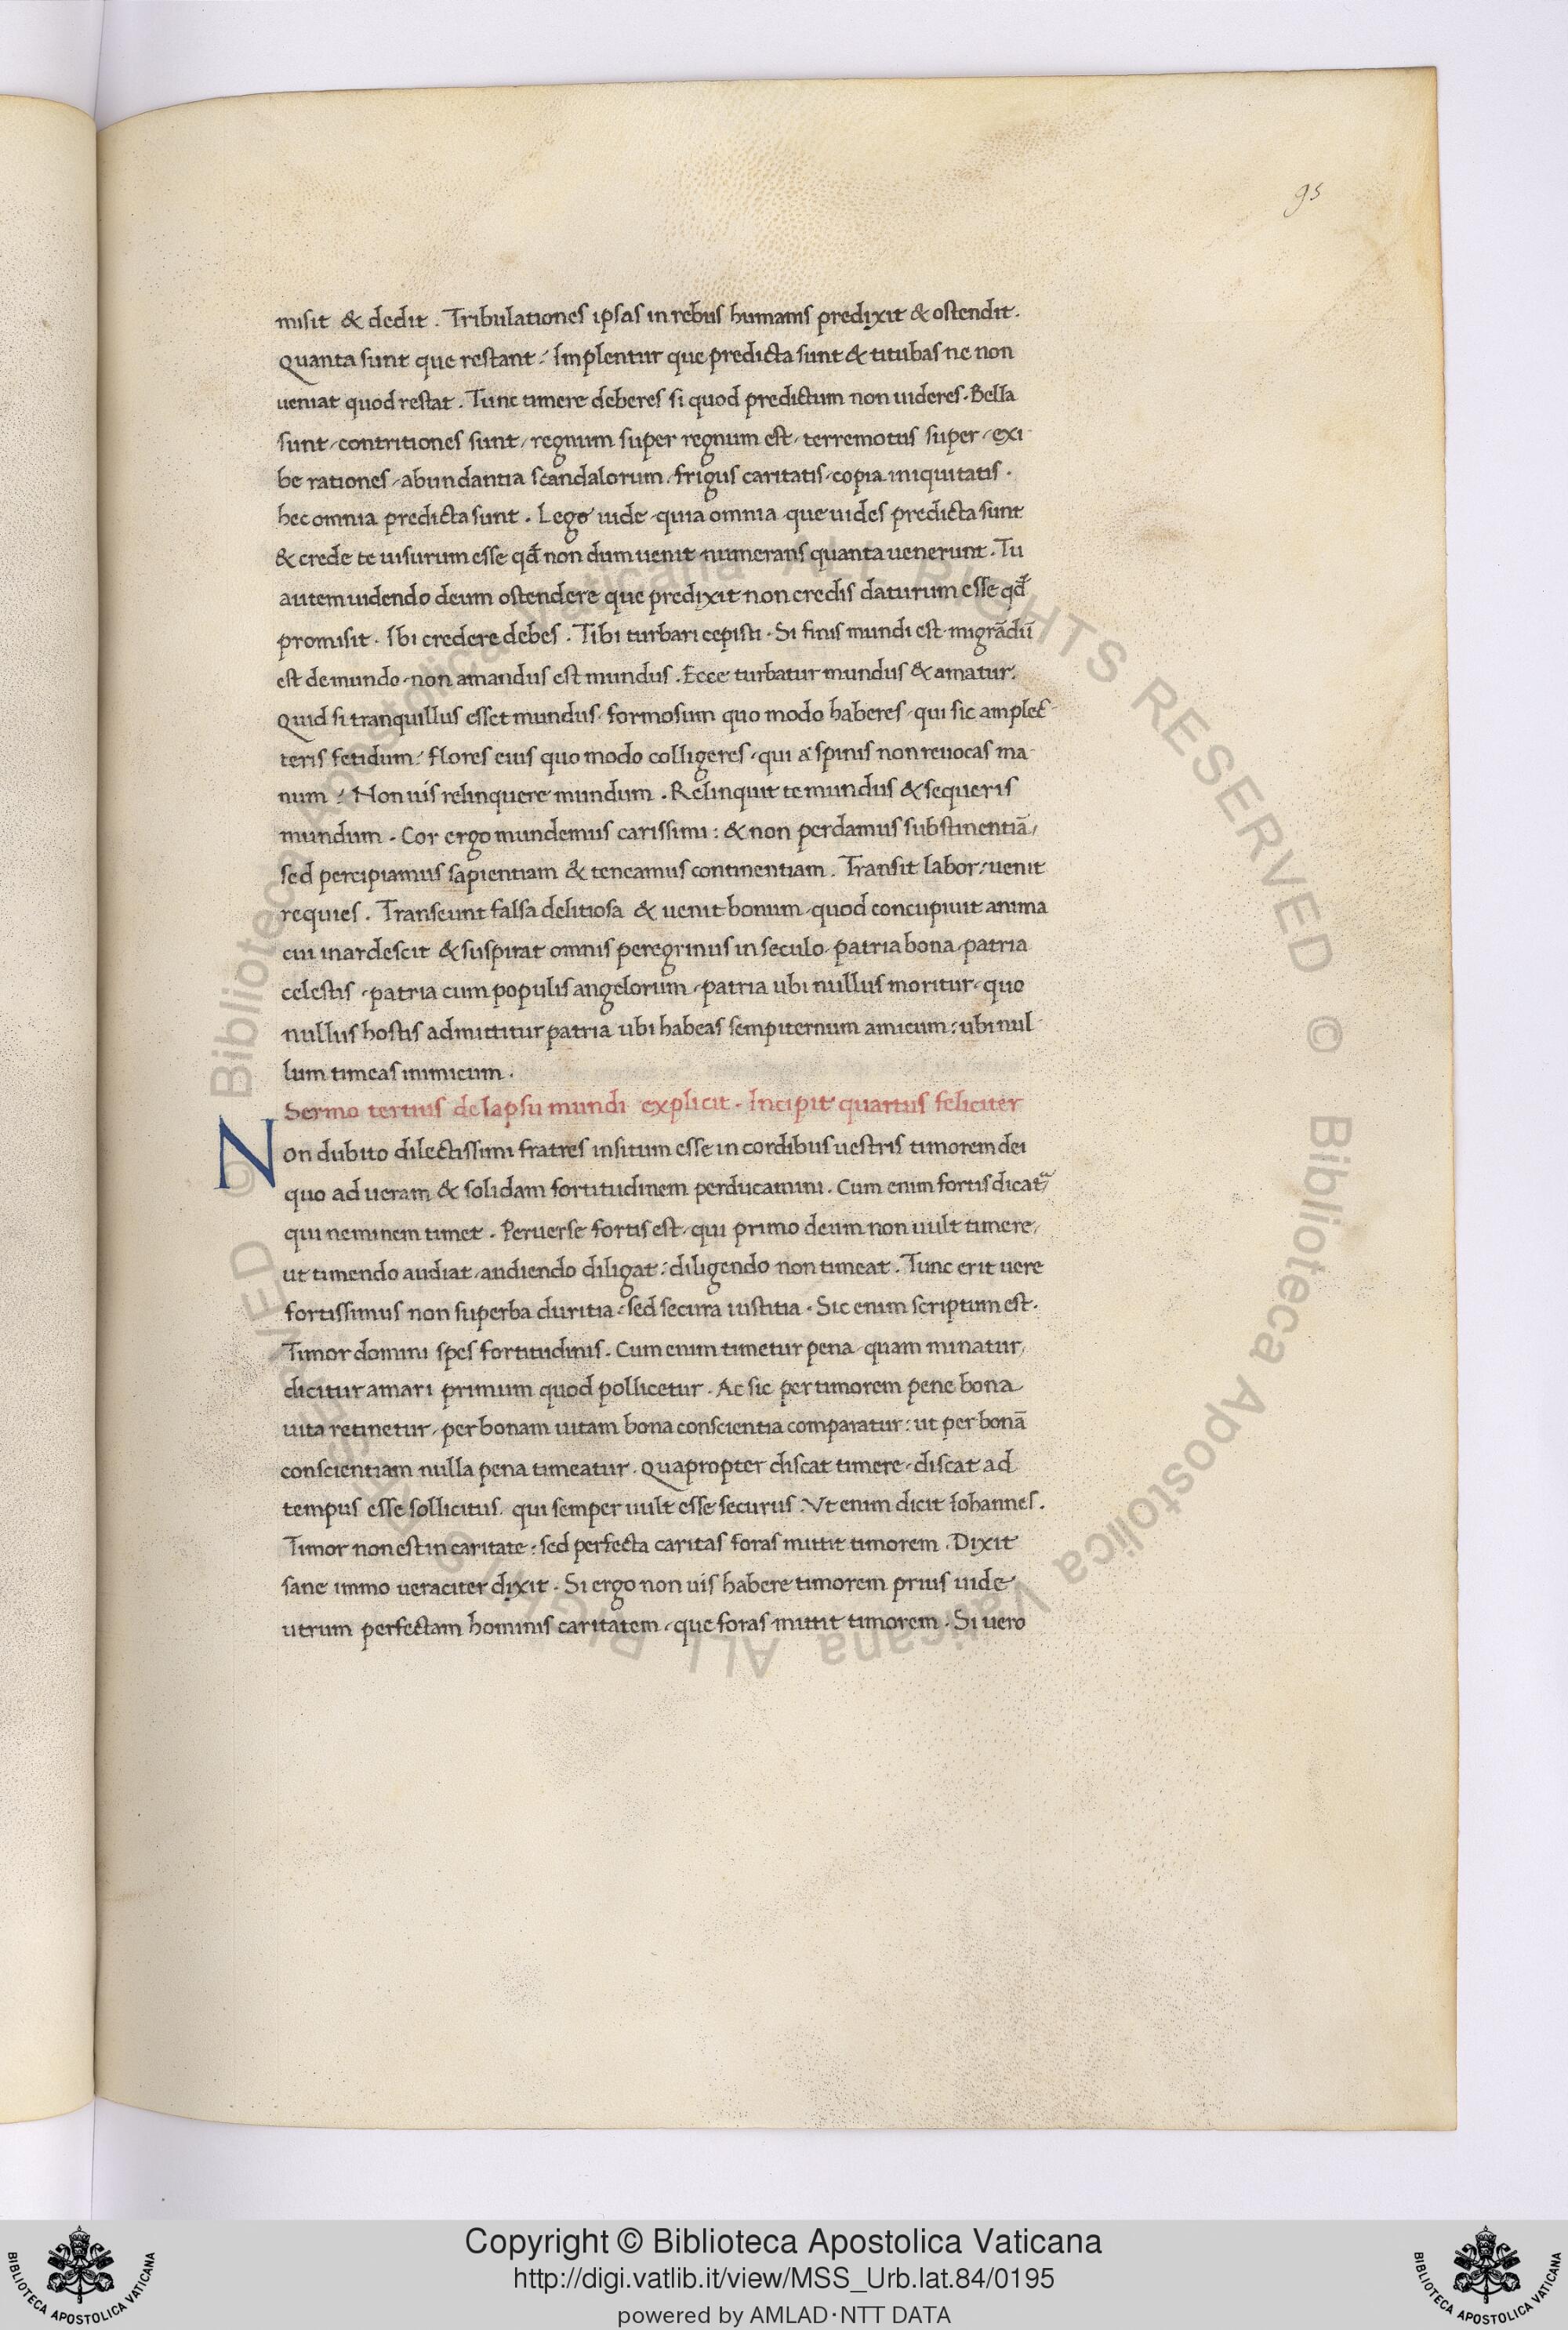 95
misit & dedit. Tribulationes ipsas in rebus humanis predixit & ostendit.
Quanta sunt que restant? Implentur que predicta sunt & titubas ne non
ueniat quod restat. Tunc timere deberes si quod predictum non uideres. Bella
sunt, contritiones sunt, regnum super regnum est, terremotus super, exi
be rationes, abundantia scandalorum, frigus caritatis, copia iniquitatis.
hec omnia predicta sunt. Lege uide quia omnia que uides predicta sunt
& crede te uisurum esse qđ non dum uenit numerans quanta uenerunt. Tu
autem uidendo deum ostendere que predixit non credis daturum esse qđ
promisit. Ibi credere debes. Tibi turbari cepisti. Si finis mundi est migrādū
est de mundo, non amandus est mundus. Ecce turbatur mundus & amatur.
Quid si tranquillus esset mundus, formosum quo modo haberes, qui sic amplec
teris fetidum? flores eius quo modo colligeres, qui a spinis non reuocas ma
num? Non uis relinquere mundum. Relinquit te mundus & sequeris
mundum. Cor ergo mundemus carissimi: & non perdamus substinentiā,
sed percipiamus sapientiam & teneamus continentiam. Transit labor: uenit
requies. Transeunt falsa delitiosa & uenit bonum, quod concupiuit anima
cui inardescit & suspirat omnis peregrinus in seculo, patria bona, patria
celestis, patria cum populis angelorum, patria ubi nullus moritur, quo
nullus hostis admittitur patria ubi habeas sempiternum amicum: ubi nul
lum timeas inimicum.
Sermo tertius de lapsu mundi explicit. Incipit quartus feliciter
Non dubito dilectissimi fratres insitum esse in cordibus uestris timorem dei
quo ad ueram & solidam fortitudinem perducamini. Cum enim fortis dicat᷑
qui neminem timet. Peruerse fortis est, qui primo deum non uult timere,
ut timendo audiat, audiendo diligat: diligendo non timeat. Tunc erit uere
fortissimus non superba duritia: sed secura iustitia. Sic enim scriptum est.
Timor domini spes fortitudinis. Cum enim timetur pena, quam minatur,
dicitur amari primum quod pollicetur. Ac sic per timorem pene bona
uita retinetur, per bonam uitam bona conscientia comparatur: ut per bonā
conscientiam nulla pena timeatur. Quapropter discat timere, discat ad
tempus esse sollicitus, qui semper uult esse securus. Vt enim dicit Iohannes.
Timor non est in caritate: sed perfecta caritas foras mittit timorem. Dixit
sane immo ueraciter dixit. Si ergo non uis habere timorem prius uide
utrum perfectam hominis caritatem, que foras mittit timorem. Si uero
© Biblioteca Apostolica Vaticana ALL RIGHTS RESERVED © Biblioteca Apostolica Vaticana ALL RIGHTS RESERVED
Copyright © Biblioteca Apostolica Vaticana
http://digi.vatlib.it/view/MSS_Urb.lat.84/0195
powered by AMLAD·NTT DATA
BIBLIOTECA APOSTOLICA VATICANA
BIBLIOTECA APOSTOLICA VATICANA